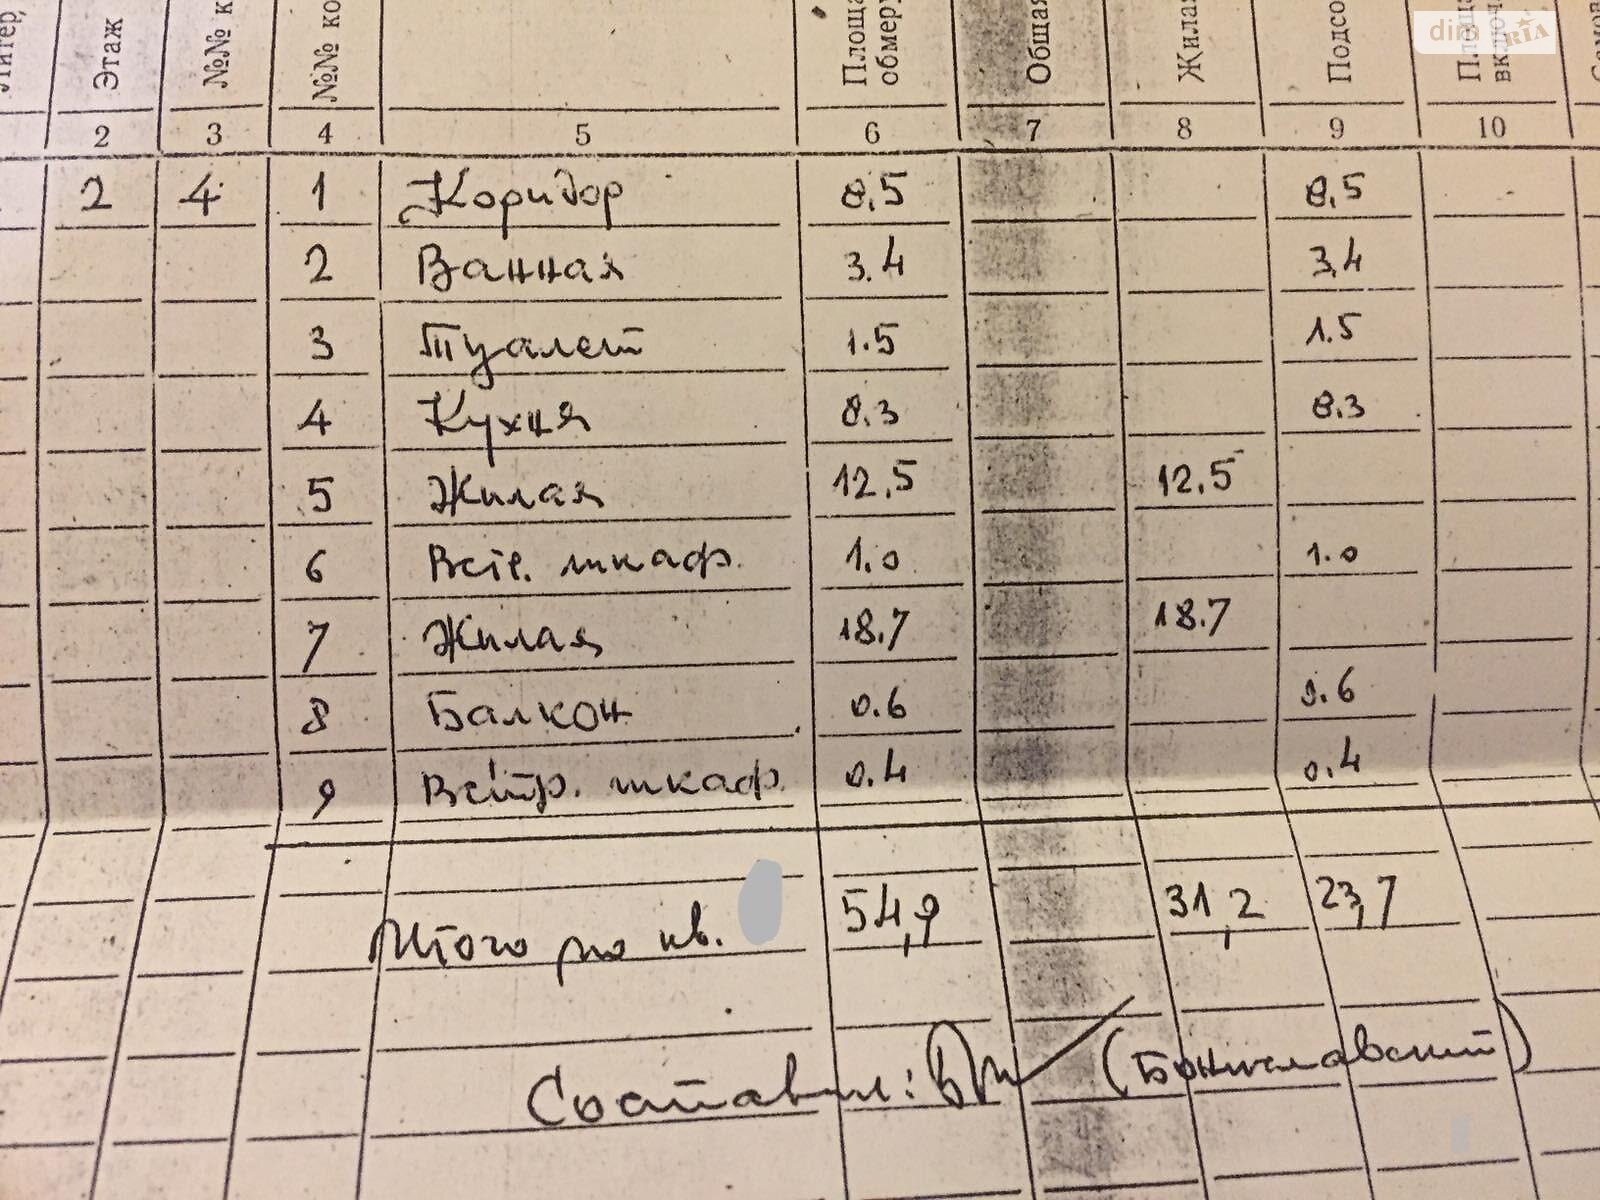 Литер, Этаж №№ к №№ ко Площа обмеру Общая Жилая Подсо Площа включ
dim RIA
2 3 4 5 6 7 8 9 10
2 4 1 Коридор 8,5 8,5
2 Ванная 3.4 3,4
3 Туалет 1.5 1.5
4 Кухня 8.3 8.3
5 Жилая 12,5 12,5
6 Встр. шкаф. 1.0 1.0
7 Жилая 18.7 18.7
8 Балкон 0.6 0.6
9 Встр. шкаф. 0.4 0.4
Итого по кв. 54,9 31,2 23,7
Составил: